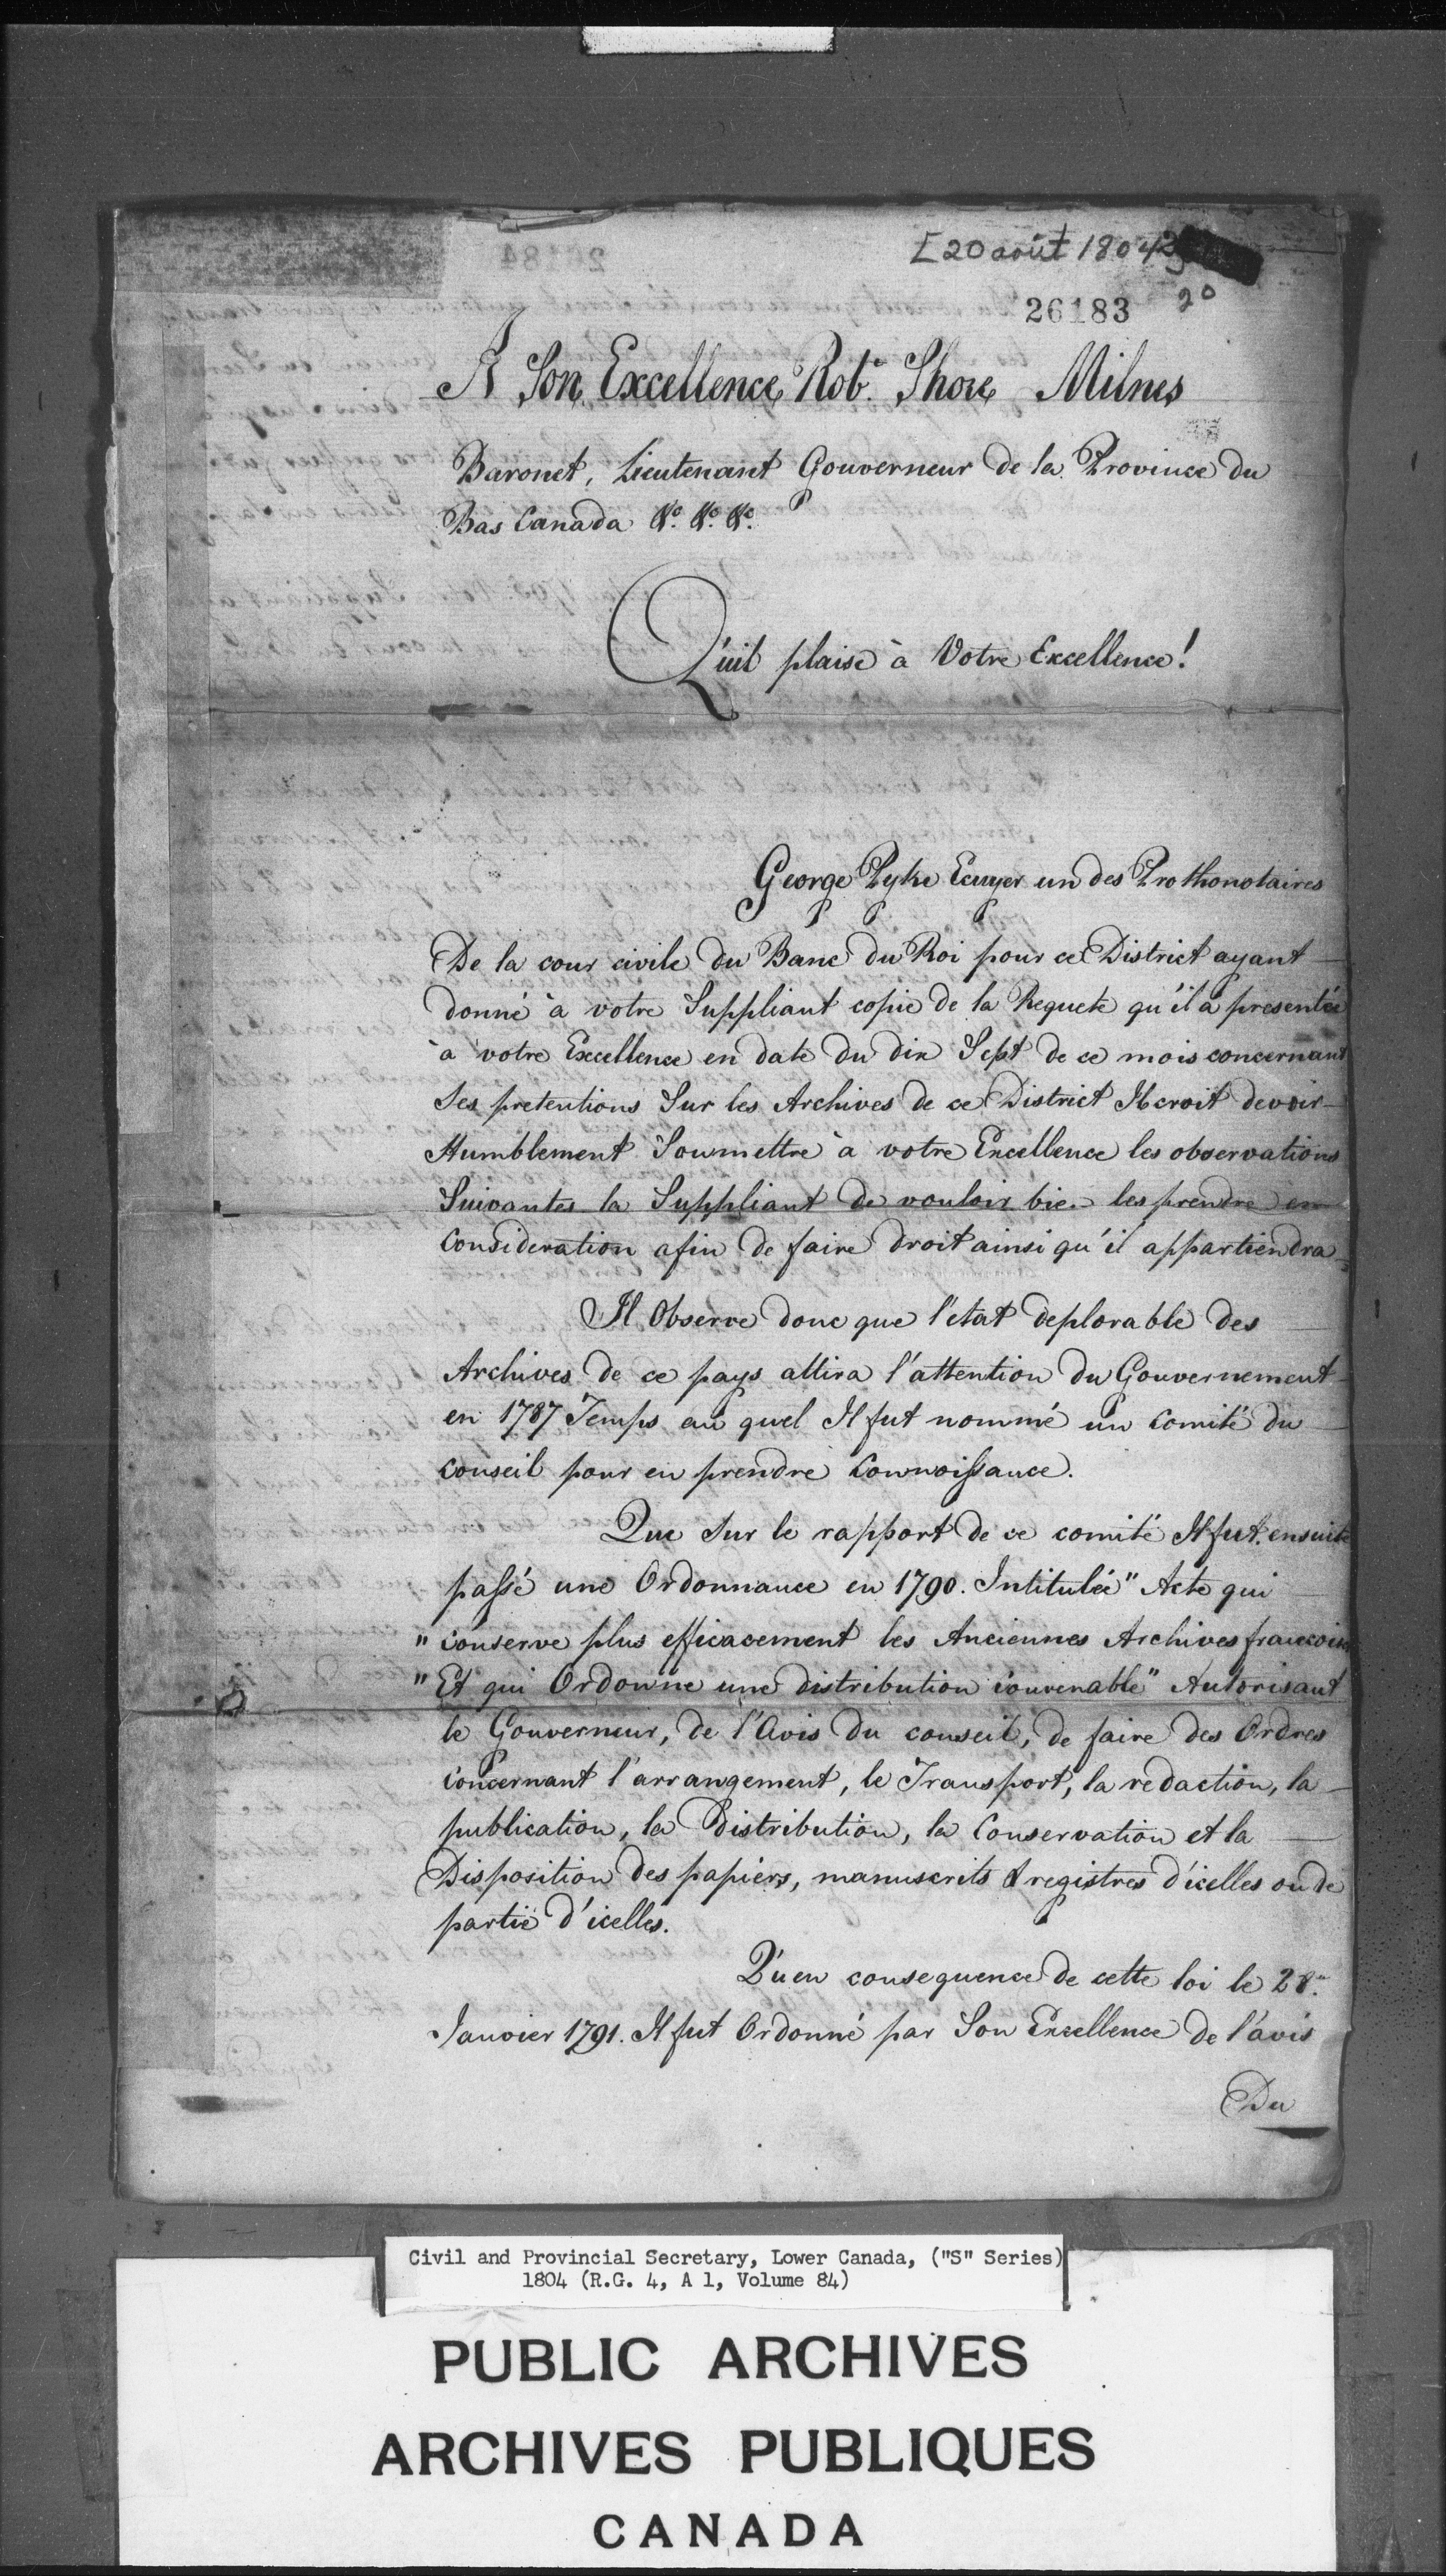 [20 août 1804
20
26183
A Son Excellence Robt. Shore Milnes
Baronet, Lieutenant Gouverneur de la Province du
Bas Canada &c. &c. &c.
Qu'il plaise à Votre Excellence!
George Pyke Ecuyer un des Prothonotaires
De la cour civile du Banc du Roi pour ce District ayant
donné à votre Suppliant copie de la Requete qu'il a presentée
à votre Excellence en date du dix Sept de ce mois concernant
Ses pretentions Sur les Archives de ce District Il croit devoir
Humblement Soumettre à votre Excellence les observations
Suivantes la Suppliant de vouloir bien les prendre en
Consideration afin de faire droit ainsi qu'il appartiendra
Il Observe donc que l'etat deplorable des
Archives de ce pays attira l'attention du Gouvernement
en 1787 Temps au quel Il fut nommé un Comité du
Conseil pour en prendre Connoissance.
Que Sur le rapport de ce comité Il fut ensuite
passé une Ordonnance en 1790. Intitulée " Acte qui
" conserve plus efficacement les Anciennes Archives francoises
" Et qui Ordonne une distribution convenable " Autorisant
le Gouverneur, de l'Avis du conseil, de faire des Ordres
concernant l'arrangement, le Transport, la redaction, la
publication, la Distribution, la Conservation et la
Disposition des papiers, manuscrits & registres d'icelles ou de
partie d'icelles.
Qu'en consequence de cette loi le 28e.
Janvier 1791. Il fut Ordonné par Son Excellence de l'avis
Du
Civil and Provincial Secretary, Lower Canada, ("S" Series)
1804 (R.G. 4, A 1, Volume 84)
PUBLIC ARCHIVES
ARCHIVES PUBLIQUES
CANADA